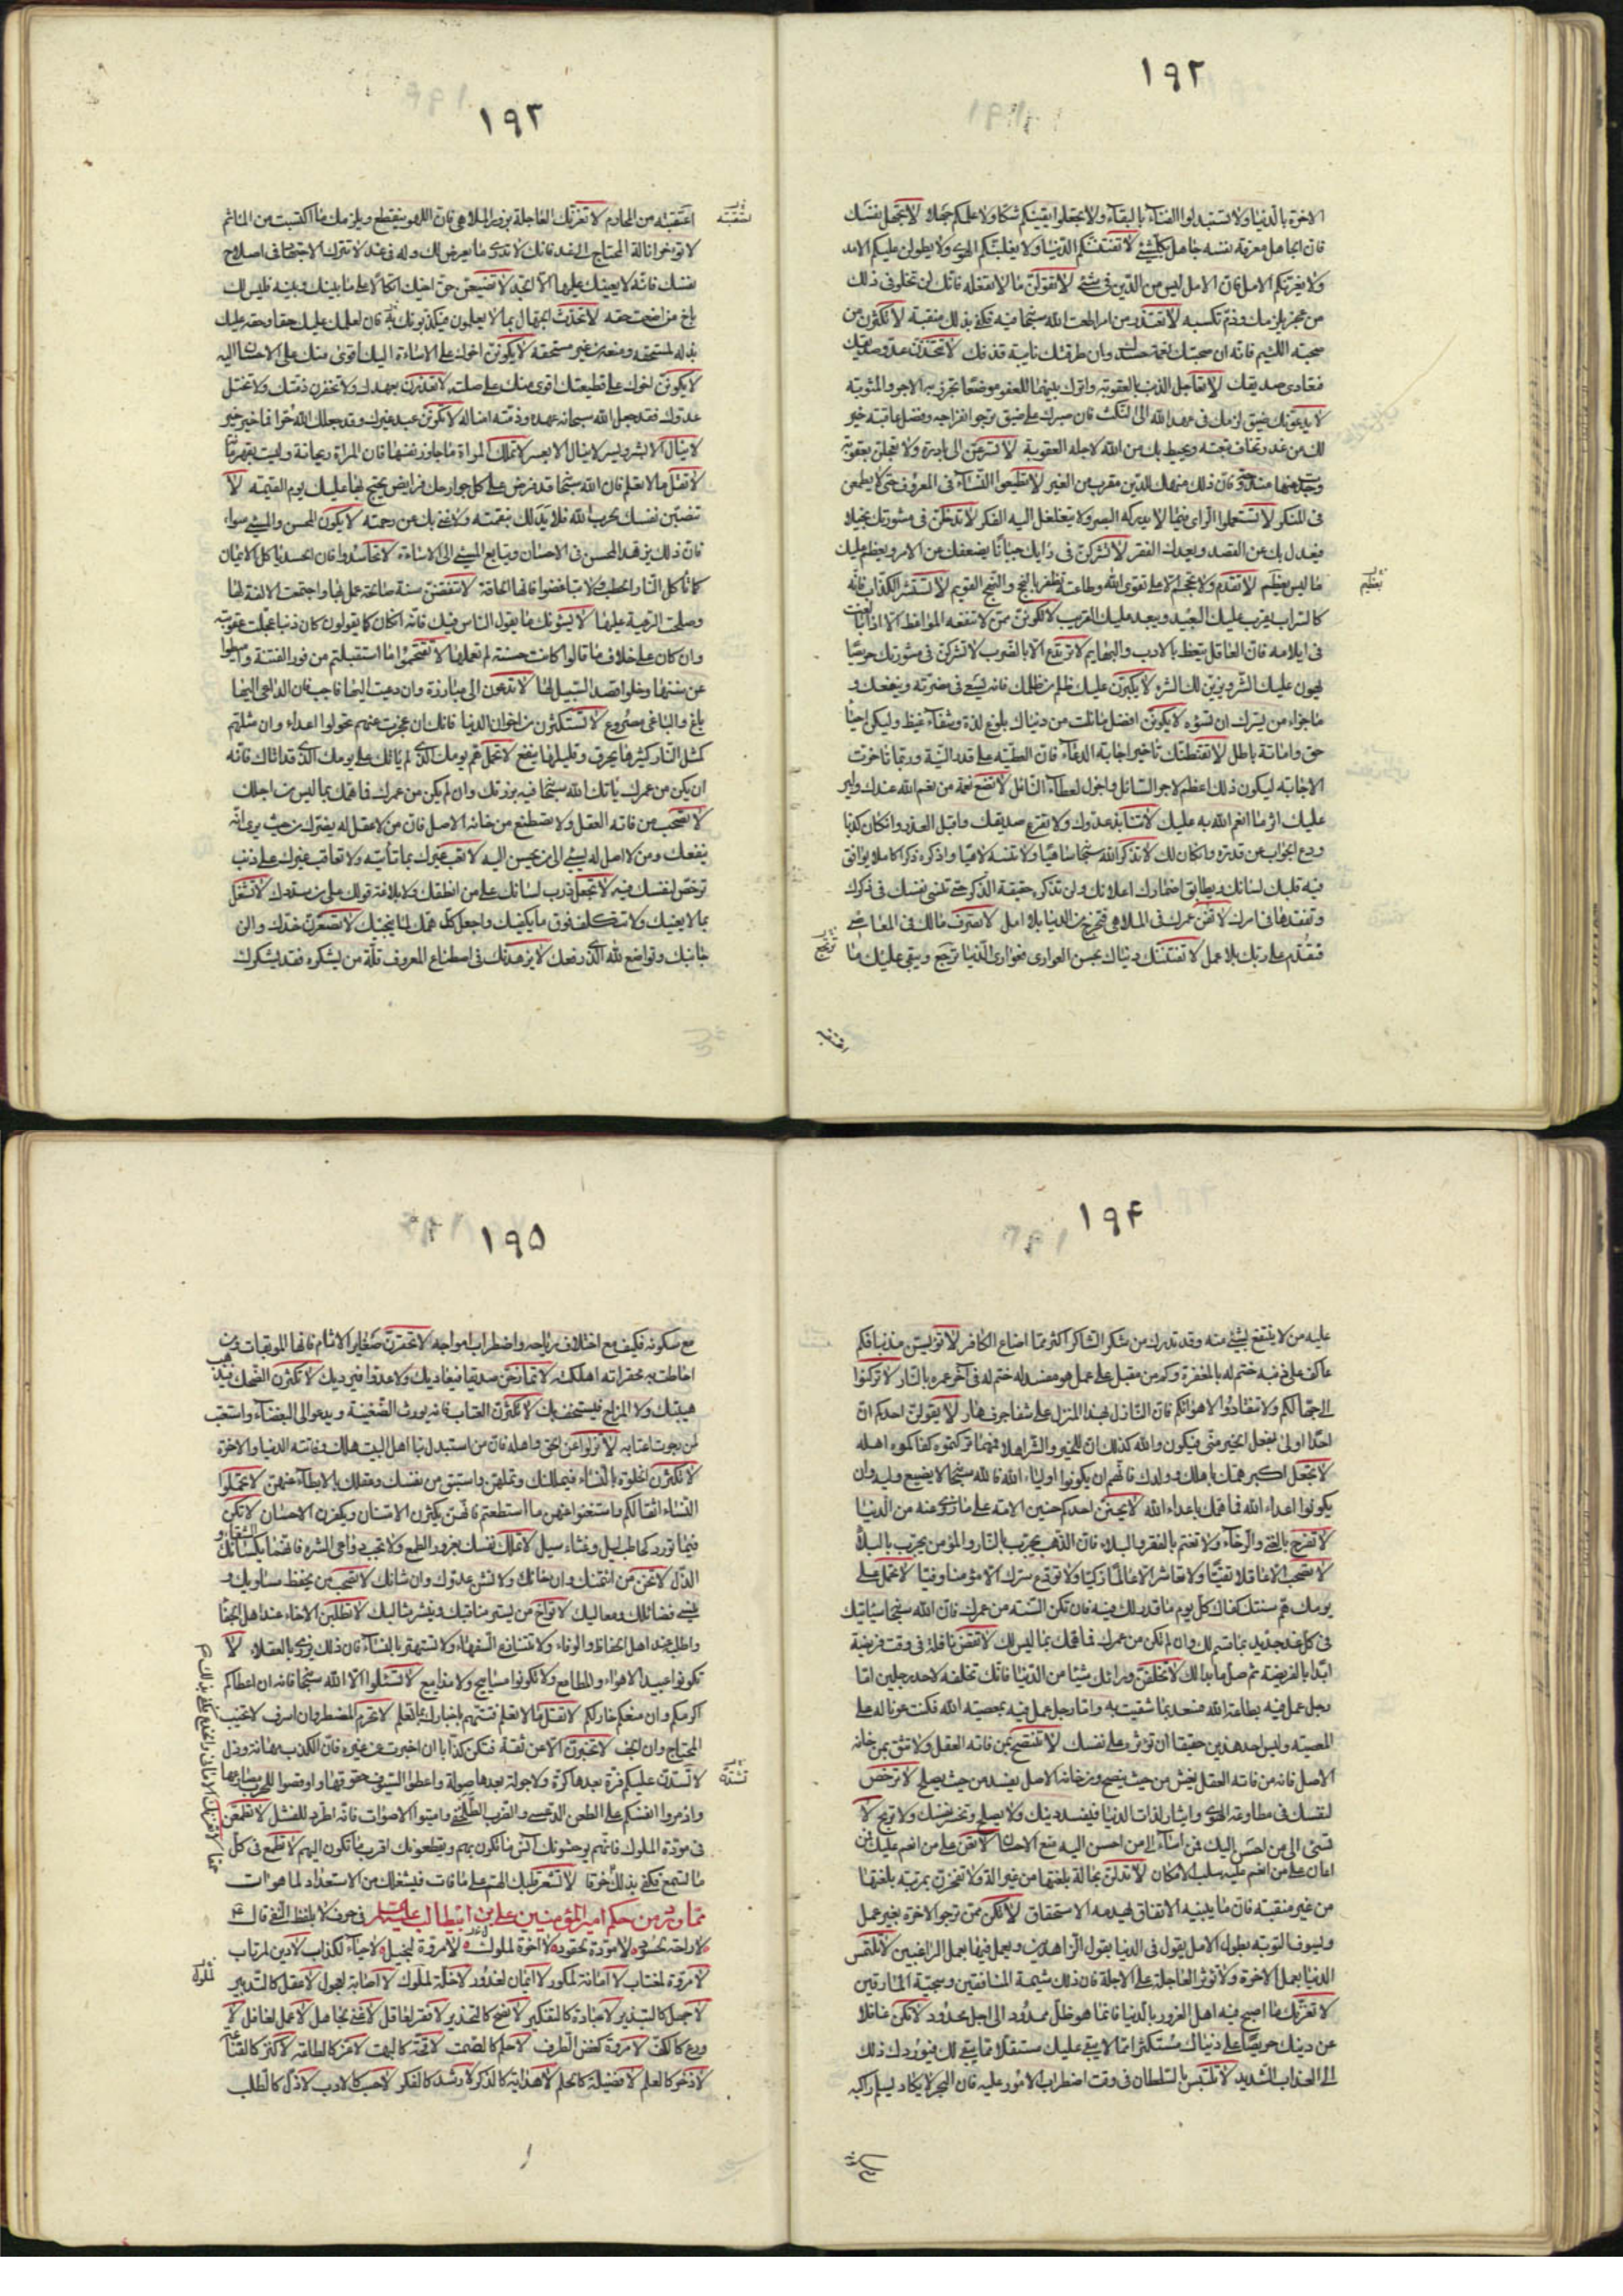 ١٩٢
الاخرة بالدنيا ولا تستبدلوا الفناء بالبقاء ولا تجعلوا يقينكم شكا ولا علمكم جهلا لا تجهل نفسك
فان الجاهل معرفة نفسه جاهل بكل شئ لا تفتننكم الدنيا ولا يغلبنكم الهوى ولا يطولن عليكم الامد
ولا يغرنكم الامل فان الامل ليس من الدين فى شئ لا تقولن ما لا تفعله فانك لن تخلو فى ذلك
من عجز يلزمك وذم تكسبه لا تعتذر من امر اطعت الله سبحانه فيه فكفى بذلك منقبة لا تكثرن من
صحبة اللئيم فانه ان صحبتك نعمة حسدك وان طرقتك نايبة قذفك لا تتخذن عدو صديقك
فتعادى صديقك لا تعاجل الذنب بالعقوبة واترك بينهما للعفو موضعا تحرز به الاجر والمثوبة
لا يدعونك ضيق لزمك فى عهد الله الى النكث فان صبرك على ضيق ترجو انفراجه وفضل عاقبته خير
لك من غدر تخاف تبعته وتحيط بك من الله لاجله العقوبة لا تسرعن الى بادرة ولا تعجلن بعقوبة
وجدت عنها مندوحة فان ذلك منهك للدين مقرب من الغير لا تطيعوا النساء فى المعروف حتى لا يطمعن
فى المنكر لا تستعملوا الراى فيما لا يدركه البصر ولا يتغلغل اليه الفكر لا تدخلن فى مشورتك بخيلا
فيعدل بك عن القصد ويعدك الفقر لا تشركن فى رايك جبانا يضعفك عن الامر ويعظم عليك
ما ليس بعظيم لا تقدم ولا تحجم الا على تقوى الله وطاعته تظفر بالنجح والنهج القويم لا تستشر الكذاب فانه
كالسراب يقرب عليك البعيد ويبعد عليك القريب لا تكونن ممن لا تنفعه الموعظة الا اذا بالغت
فى ايلامه فان العاقل يتعظ بالادب والبهايم لا ترتدع الا بالضرب لا تشركن فى مشورتك حريصا
يهون عليك الشر ويزين لك الشره لا يكبرن عليك ظلم من ظلمك فانه يسعى فى مضرته ونفعك و
ما جزاء من يسرك ان تسوءه لا يكونن افضل ما نلت من دنياك بلوغ لذة وشفاء غيظ وليكن احيا
حق واماتة باطل لا تقنطنك تاخير اجابة الدعاء فان العطية على قدر النية وربما تاخرت
الاجابة ليكون ذلك اعظم لاجر السائل واجزل لعطاء النائل لا تضع نعمة من نعم الله عندك ولير
عليك اثر ما انعم الله به عليك لا تنابذ عدوك ولا تقرع صديقك واقبل العذر وان كان كذبا
ودع الجواب عن قدرة وان كان لك لا تذكر الله سبحانه ساهيا ولا تنسه لاهيا واذكره ذكرا كاملا يوافق
فيه قلبك لسانك ويطابق اضمارك اعلانك ولن تذكر حقيقة الذكر حتى تنسى نفسك فى ذكرك
وتفقدها فى امرك لا تفن عمرك فى الملاهى فتخرج من الدنيا بلا امل لا تصرف مالك فى المعاصى
فتقدم على ربك بلا عمل لا تفتننك دنياك بحسن العوارى فعوارى الدنيا ترتجع ويبقى عليك ما
١٩٣
احتقبته من المحارم لا تغرنك العاجلة بزور الملاهى فان اللهو ينقطع ويلزمك ما اكتسبت من المآثم
لا تؤخر انالة المحتاج الى غد فانك لا تدرى ما يعرض لك وله فى غد لا تترك الاجتهاد فى اصلاح
نفسك فانه لا يعينك عليها الا الجد لا تضيعن حق اخيك اتكالا على ما بينك وبينه فليس لك
باخ من اضعت حقه لا تحدث الجهال بما لا يعلمون فيكذبونك به فان لعلمك عليك حقا وحقه عليك
بذله لمستحقه ومنعه من غير مستحقه لا يكونن اخوك على الاساءة اليك اقوى منك على الاحسان اليه
لا يكونن اخوك على قطيعتك اقوى منك على صلته لا تغدرن بعهدك ولا تخفرن ذمتك ولا تختل
عدوك فقد جعل الله سبحانه عهده وذمته امنا له لا تكونن عبد غيرك وقد جعلك الله حرا فما خير خير
لا ينال الا بشر ويسر لا ينال الا بعسر لا تملك المراة ما جاوز نفسها فان المراة ريحانة وليست بقهرمانة
لا تقل ما لا تعلم فان الله سبحانه قد فرض على كل جوارحك فرايض يحتج بها عليك يوم القيمة لا
تنصبن نفسك لحرب الله فلا يد لك بنقمته ولا غنى بك عن رحمته لا يكون المحسن والمسئ سواء
فان ذلك يزهد المحسن فى الاحسان ويتابع المسئ الى الاساءة لا تحاسدوا فان الحسد ياكل الايمان
كما تاكل النار الحطب ولا تباغضوا فانها الحالقة لا تنقضن سنة صالحة عمل بها واجتمعت الالفة لها
وصلحت الرعية عليها لا يسؤنك ما يقول الناس فيك فانه ان كان كما يقولون كان ذنبا عجلت عقوبته
وان كان على خلاف ما قالوا كانت حسنة لم تعملها لا تقتحموا ما استقبلتم من فور الفتنة واميطوا
عن سننها وخلوا قصد السبيل لها لا تدعون الى مبارزة وان دعيت اليها فاجب فان الداعى اليها
باغ والباغى مصروع لا تستكثرن من اخوان الدنيا فانك ان عجزت عنهم تحولوا اعداء وان مثلهم
كمثل النار كثيرها يحرق وقليلها ينفع لا تحمل هم يومك الذى لم ياتك على يومك الذى قد اتاك فانه
ان يكن من عمرك ياتك الله سبحانه فيه برزقك وان لم يكن من عمرك فما همك بما ليس من اجلك
لا تصحب من فاته العقل ولا تصطنع من خانه الاصل فان من لا عقل له يضرك من حيث يرى انه
ينفعك ومن لا اصل له يسئ الى من يحسن اليه لا تعب غيرك بما تاتيه ولا تعاقب غيرك على ذنب
ترخص لنفسك فيه لا تجعل ذرب لسانك على من انطقك ولا بلاغة قولك على من سددك لا تشتغل
بما لا يعنيك ولا تتكلف فوق ما يكفيك واجعل كل همك لما ينجيك لا تصعرن خدك والن
جانبك وتواضع لله الذى رفعك لا يزهدنك فى اصطناع المعروف قلة من يشكره فقد يشكرك
١٩۴
عليه من لا ينتفع بشئ منه وقد تدرك من شكر الشاكر اكثر مما اضاع الكافر لا تؤيس مذنبا فكم
عاكف على ذنبه ختم له بالمغفرة وكم من مقبل على عمل هو مفسد له ختم له فى آخر عمره بالنار لا تركنوا
الى جهالكم ولا تنقادوا لاهوائكم فان النازل بهذا المنزل على شفا جرف هار لا يقولن احدكم ان
احدا اولى بفعل الخير منى فيكون والله كذلك ان للخير والشر اهلا فمهما تركتموه كفاكموه اهله
لا تجعل اكبر همك باهلك وولدك فانهم ان يكونوا اولياء الله فالله سبحانه لا يضيع وليه وان
يكونوا اعداء الله فما همك باعداء الله لا يحنن احدكم حنين الامة على ما زوى عنه من الدنيا
لا تفرح بالغنى والرخاء ولا تغتم بالفقر والبلاء فان الذهب يجرب بالنار والمؤمن يجرب بالبلاء
لا تصحب الا عاقلا تقيا ولا تعاشر الا عالما زكيا ولا تودع سرك الا مؤمنا وفيا لا تحمل على
يومك هم سنتك كفاك كل يوم ما قدر لك فيه فان تكن السنة من عمرك فان الله سبحانه سياتيك
فى كل غد جديد بما قسم لك وان لم تكن من عمرك فما همك بما ليس لك لا تقض نافلة فى وقت فريضة
ابدا بالفريضة ثم صل ما بدا لك لا تخلفن وراءك شيئا من الدنيا فانك تخلفه لاحد رجلين اما
رجل عمل فيه بطاعة الله فسعد بما شقيت به واما رجل عمل فيه بمعصية الله فكنت عونا له على
المعصية وليس احد هذين حقيقا ان تؤثره على نفسك لا تنتصح بمن فاته العقل ولا تثق بمن خانه
الاصل فانه من فاته العقل يغش من حيث ينصح ومن خانه الاصل يفسد من حيث يصلح لا ترخص
لنفسك فى مطاوعة الهوى وايثار لذات الدنيا فيفسد دينك ولا يصلح وتخسر نفسك ولا تربح لا
تسئ الى من احسن اليك فمن اساء الى من احسن اليه منع الاحسان لا تعن على من انعم عليك فمن
اعان على من انعم عليه سلب الامكان لا تدلن بحالة بلغتها من غير آلة ولا تفخرن بمرتبة بلغتها
من غير منقبة فان ما يبنيه الاتفاق يهدمه الاستحقاق لا تكن ممن ترجو الاخرة بغير عمل
وليسوف التوبة بطول الامل يقول فى الدنيا بقول الزاهدين ويعمل فيها بعمل الراغبين لا تلتمس
الدنيا بعمل الاخرة ولا تؤثر العاجلة على الاجلة فان ذلك شيمة المنافقين وسجية المارقين
لا تغرنك ما اصبح فيه اهل الغرور بالدنيا فانما هو ظل ممدود الى اجل محدود لا تكن غافلا
عن دينك حريصا على دنياك مستكثرا مما لا يبقى عليك مستقلا مما يبقى لك فيوردك ذلك
الى العذاب الشديد لا تلتبس بالسلطان فى وقت اضطراب الامور عليه فان البحر لا يكاد يسلم راكبه
١٩۵
مع سكونه فكيف مع اختلاف رياحه واضطراب امواجه لا تحقرن صغاير الاثام فانها الموبقات ومن
احاطت به محقراته اهلكته لا تمازحن صديقا فيعاديك ولا عدوا فيرديك لا تكثرن الضحك فتذهب
هيبتك ولا المزاح فيستخف بك لا تكثرن العتاب فانه يورث الضغينة ويدعو الى البغضاء واستعتب
لمن رجوت اعتابه لا تزلوا عن الحق واهله فان من استبدل بنا اهل البيت هلك وفاتته الدنيا والاخرة
لا تكثرن الخلوة بالنساء فيمللنك وتملهن واستبق من نفسك وعقلك بالابطاء عنهن لا تحملوا
النساء اثقالكم واستغنوا عنهن ما استطعتم فانهن يكثرن الامتنان ويكفرن الاحسان لا تكن
فيما تورد كحاطب ليل وغثاء سيل لا تملك نفسك بغرور الطمع ولا تجب دواعى الشره فانهما يكسبانك الشقاء و
الذل لا تخن من ائتمنك وان خانك ولا تشن عدوك وان شانك لا تصحب من يحفظ مساويك و
ينسى فضائلك ومعاليك لا تواخ من يستر مناقبك وينشر مثالبك لا تطلبن الاخاء عند اهل الجفا
واطلبه عند اهل الحفاظ والوفاء ولا تتنازع السفهاء ولا تستهتر بالنساء فان ذلك يزرى بالعقلاء لا
تكونوا عبيد الاهواء والمطامع ولا تكونوا مساييح ولا مذاييع لا تسئلوا الا الله سبحانه فانه ان اعطاكم
اكرمكم وان منعكم خار لكم لا تقل ما لا تعلم فتتهم باخبارك بما تعلم لا تحرم المضطر وان اسرف لا تخيب
المحتاج وان الحف لا تخبرن الا عن ثقة فتكن كذابا ان اخبرت عن غيره فان الكذب مهانة وذل
لا تشتدن عليكم فرة بعدها كرة ولا جولة بعدها صولة واعطوا السيوف حقوقها واوقصوا للحرب مصارعها
واذمروا انفسكم على الطعن الدعسى والضرب الطلحفى واميتوا الاصوات فانه اطرد للفشل لا تطمعن
فى مودة الملوك فانهم يوحشونك آنس ما تكون بهم ويقطعونك اقرب ما تكون اليهم لا تطمع فى كل
ما تسمع فكفى بذلك خرقا لا تشعر قلبك الهم على ما فات فيشغلك عن الاستعداد لما هو ات
مما ورد من حكم امير المؤمنين على بن ابيطالب عليه السلم فى حرف لا بلفظ النفى قال ع
لا راحة لحسود لا مودة لحقود لا اخوة لملول لا مروة لبخيل لا حياء لكذاب لا دين لمرتاب
لا مروة لمغتاب لا امانة لمكور لا ايمان لغدور لا خلة لملول لا اصابة لعجول لا عقل كالتدبير
لا جهل كالتبذير لا عبادة كالتفكير لا نصح كالتحذير لا فقر لعاقل لا غنى لجاهل لا عمل لغافل لا
ورع كالكف لا مروة كغض الطرف لا حلم كالصمت لا قحة كالبهت لا عز كالطاعة لا كنز كالقناعة
لا ذخر كالعلم لا فضيلة كالحلم لا هداية كالذكر لا رشد كالفكر لا حسب كالادب لا ذل كالطلب